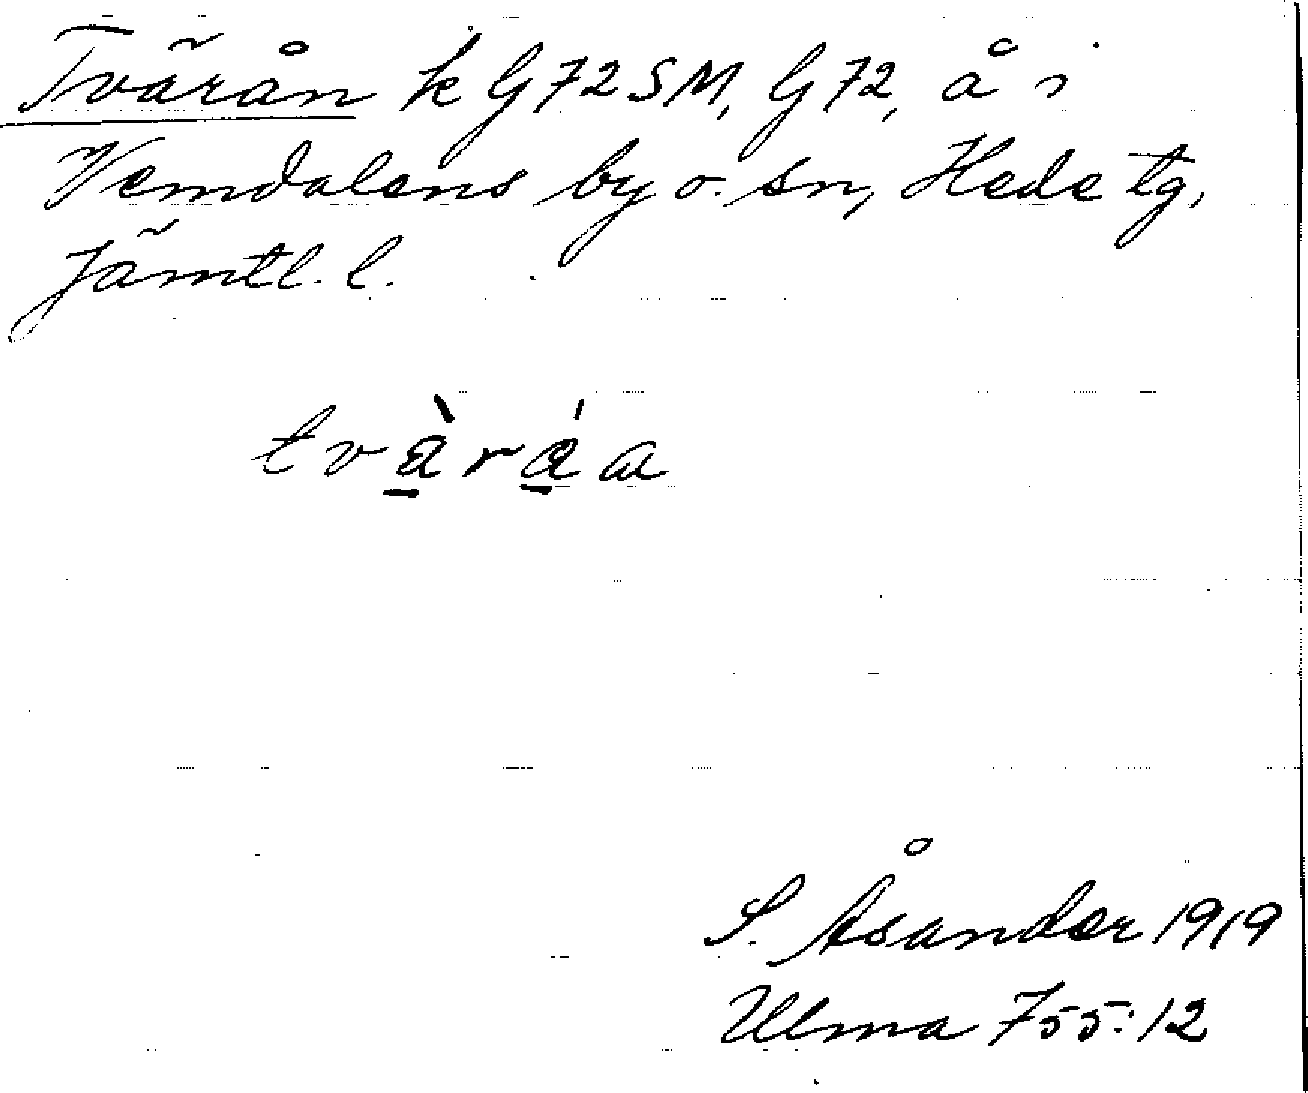 Tvärån k G72SM, G72, å i
Vemdalens by o. sn, Hede tg,
Jämtl. l.
tvàråa
S. Åsander 1919
Ulma 755:12